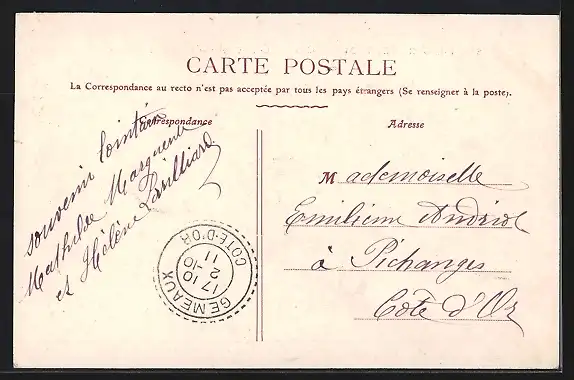 CARTE POSTALE
La Correspondance au recto n'est pas acceptée par tous les pays étrangers (Se renseigner à la poste).
Correspondance
Adresse
souvenir lointain
Mathilde Marguerite
et Hélène Brulliard
Mademoiselle
Emilienne Andriot
à Pichanges
Côte d'Or
GEMEAUX
17 10
2 -10
11
COTE-D'OR